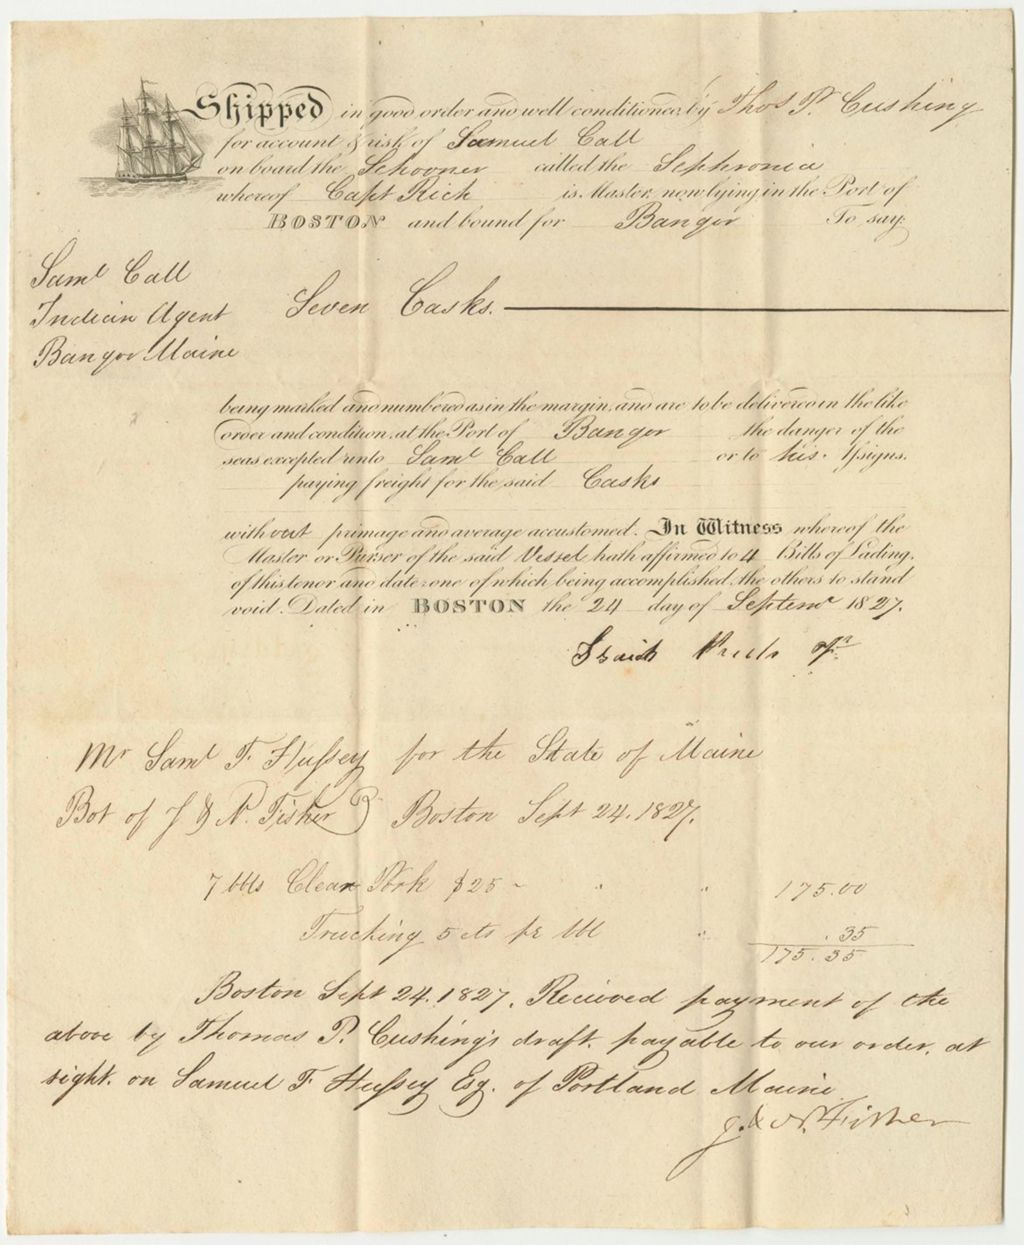 Shipped in good order and well conditioned by Thos P. Cushing
for account & risk of Samuel Call
on board the Schooner called the Sephronia
whereof Capt Rich is Master, now lying in the Port of
BOSTON and bound for Bangor To say:
Saml Call
Indian Agent
Bangor Maine
Seven Casks.
being marked and numbered as in the margin, and are to be delivered in the like
order and condition, at the Port of Bangor the danger of the
seas excepted unto Saml Call or to his Assigns,
paying freight for the said Casks
without primage and average accustomed. In Witness whereof the
Master or Purser of the said Vessel hath affirmed to 4 Bills of Lading,
of this tenor and date: one of which being accomplished, the others to stand
void. Dated in BOSTON the 24 day of Septemr 1827.
Mr Saml F. Hussey for the State of Maine
Bot of J & N. Fisher Boston Sept 24. 1827.
7 bbls Clear Pork $25 - " " 175.00
Trucking 5 cts pr bbl " .35
175.35
Boston Sept 24. 1827. Recieved payment of the
above by Thomas P. Cushing's draft. payable to our order, at
sight. on Samuel F. Hussey Esq. of Portland Maine
J. & N. Fisher